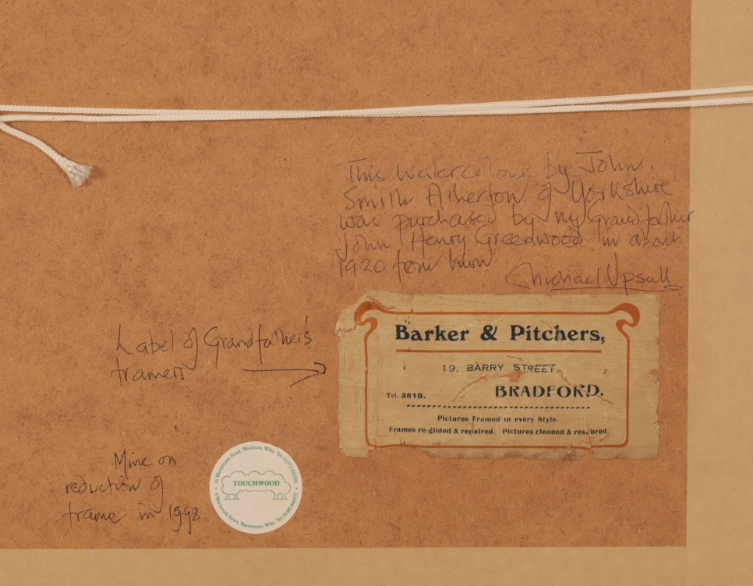 This watercolour by John
Smith Atherton of Yorkshire
was purchased by my Grandfather
John Henry Greenwood in about
1920 from him
Michael Upsall
Label of Grandfather's
framers
Barker & Pitchers,
19, BARRY STREET,
Tel. 3819.
BRADFORD.
Pictures Framed in every Style.
Frames re-gilded & repaired. Pictures cleaned & restored.
Mine on
reduction of
frame in 1998
TOUCHWOOD